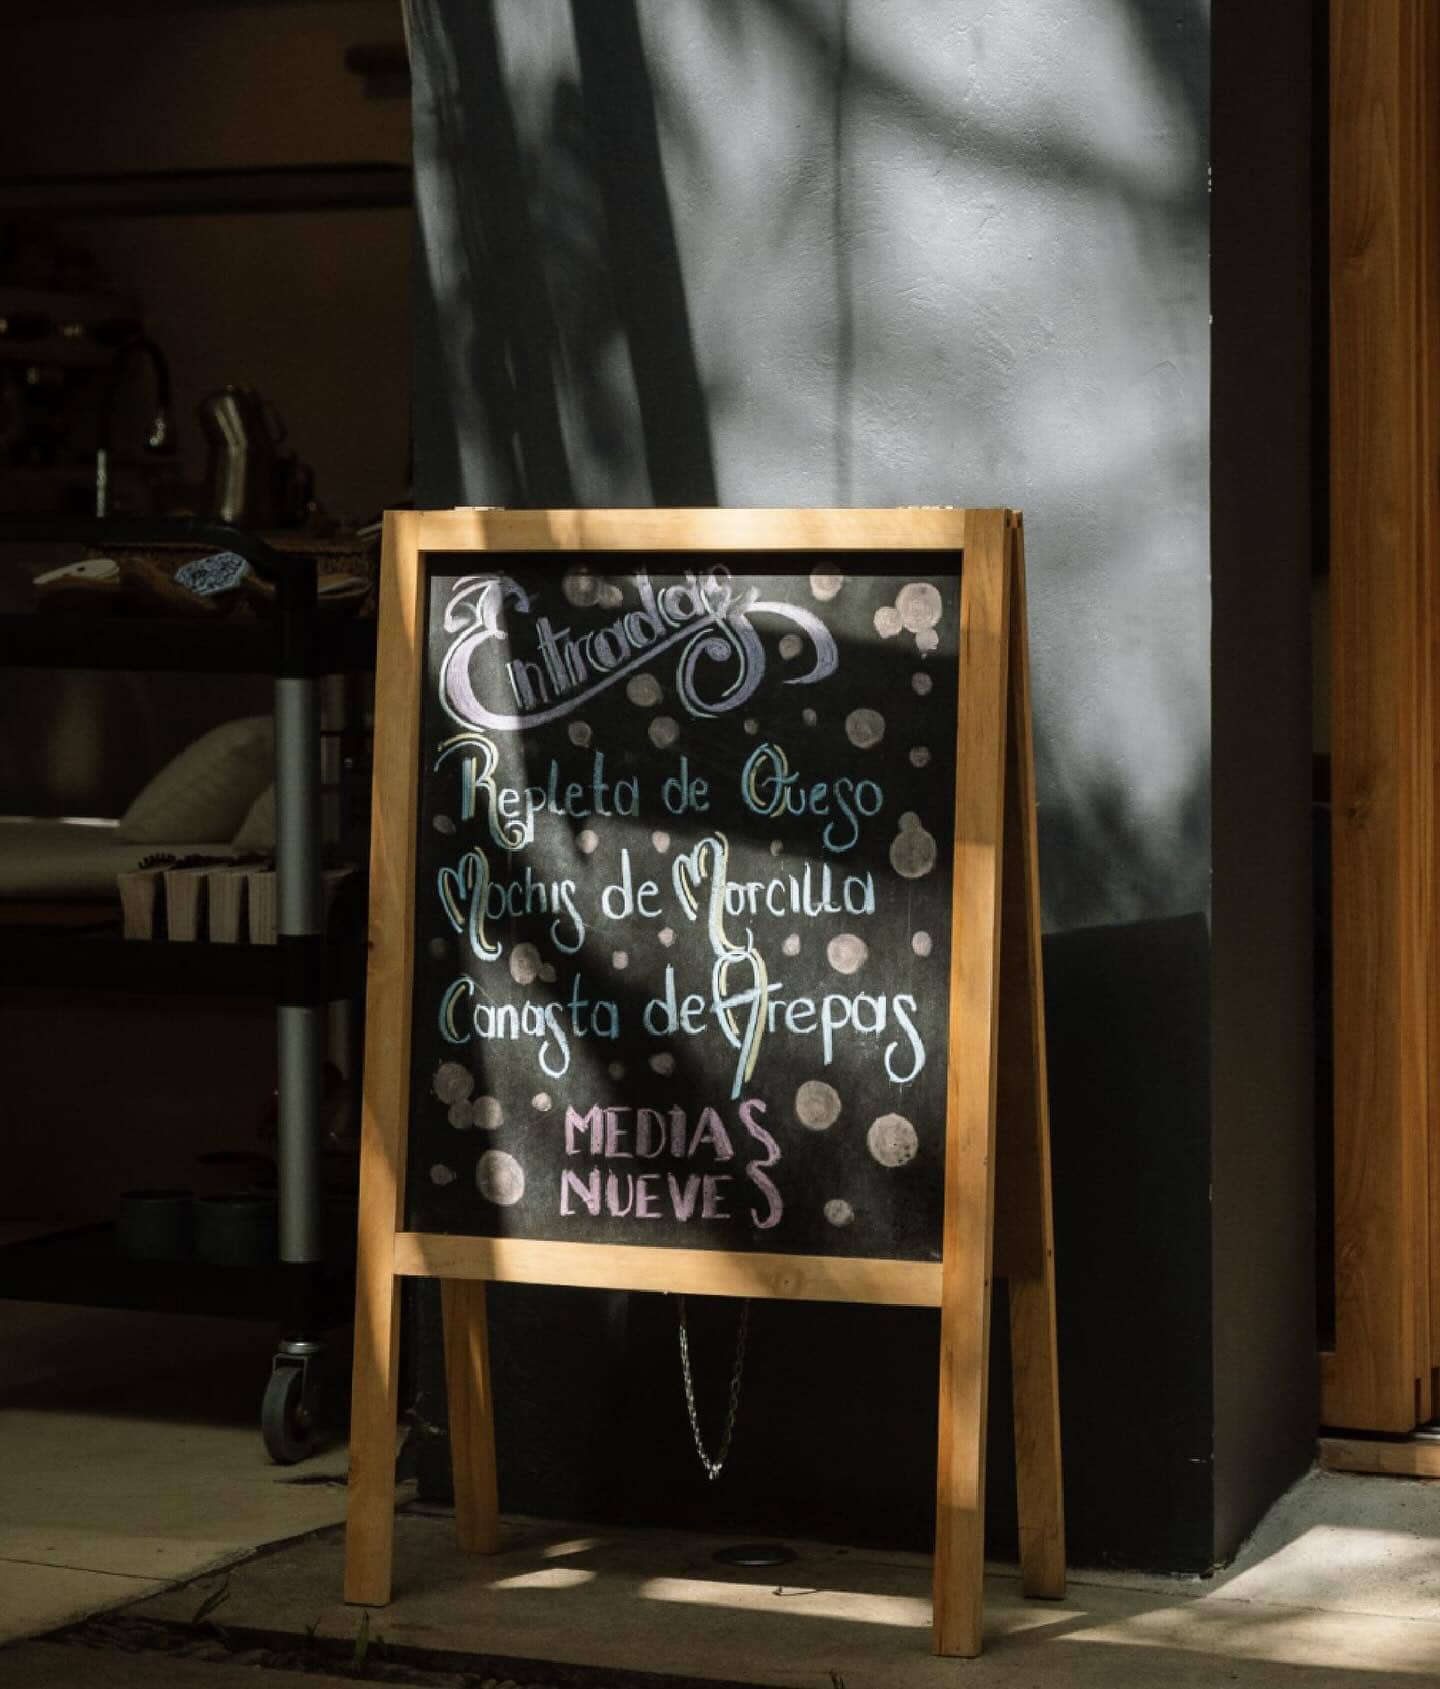 Entradas
Repleta de Queso
Mochis de Morcilla
Canasta de Arepas
MEDIAS
NUEVES